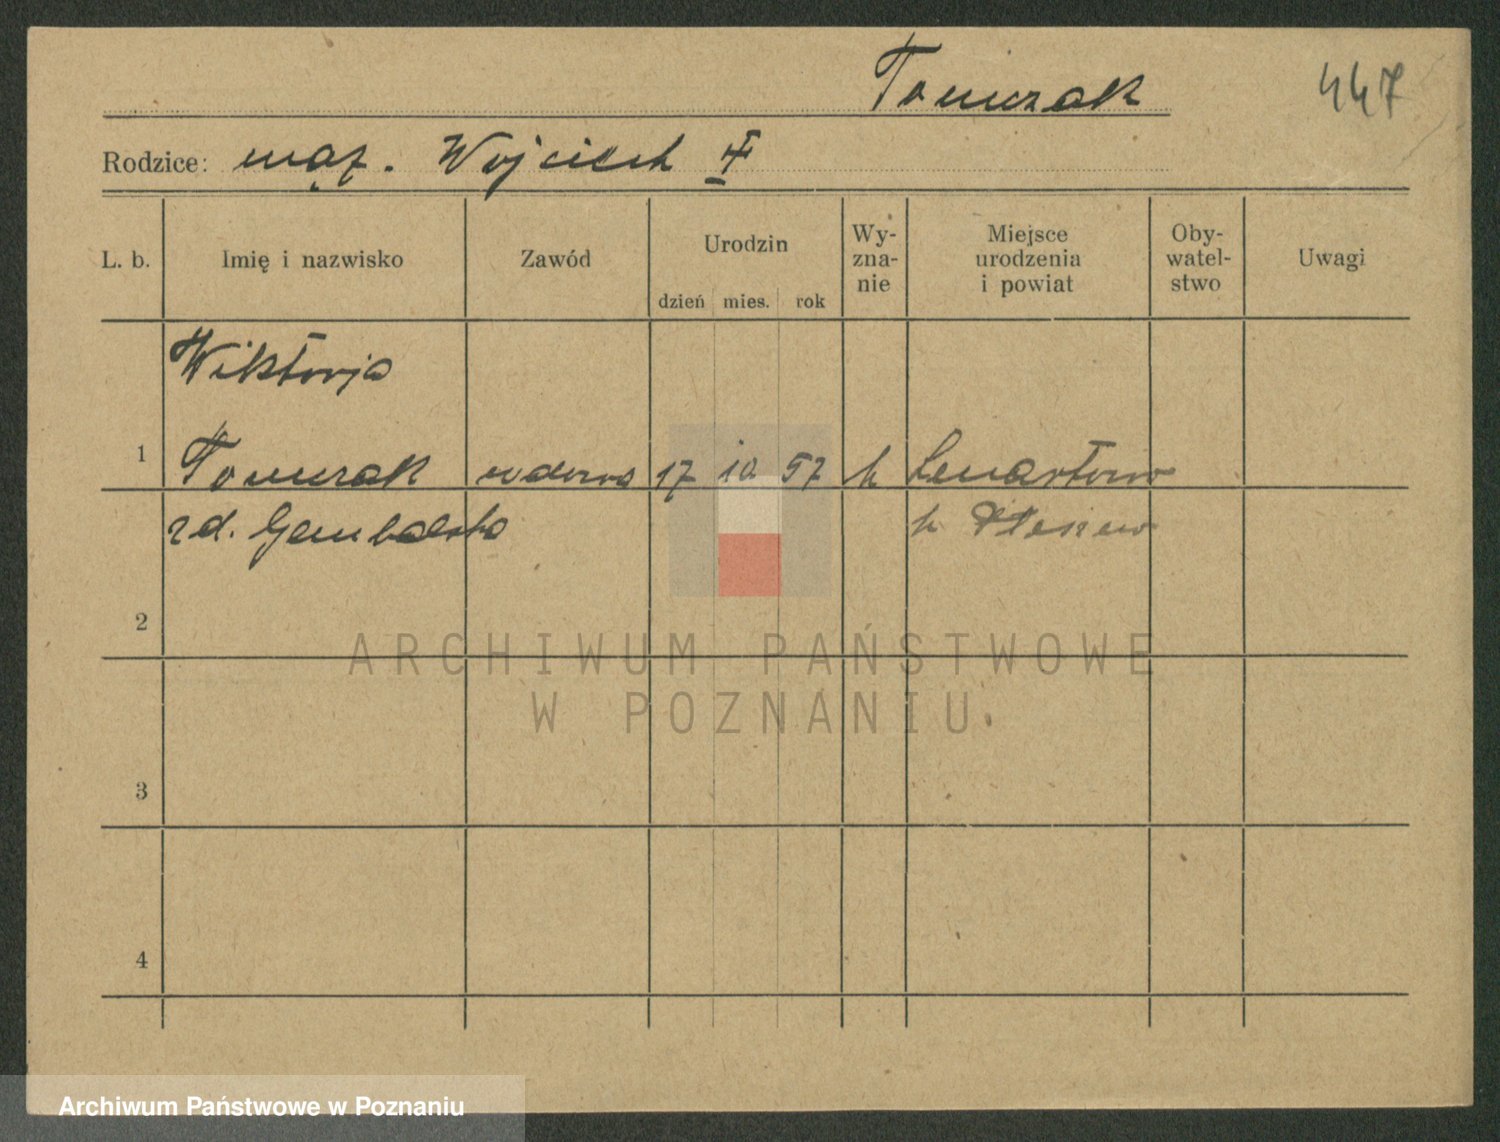 Tomczak
447
Rodzice: mąż. Wojciech
L. b. Imię i nazwisko Zawód Urodzin dzień mies. rok Wy-zna-nie Miejsce urodzenia i powiat Oby-watel-stwo Uwagi
Wiktorja
1 Tomczak wdowa 17 10 57 k Lenartow
zd. Gembalska p. Pleszew
2
ARCHIWUM PAŃSTWOWE
W POZNANIU
3
4
Archiwum Państwowe w Poznaniu